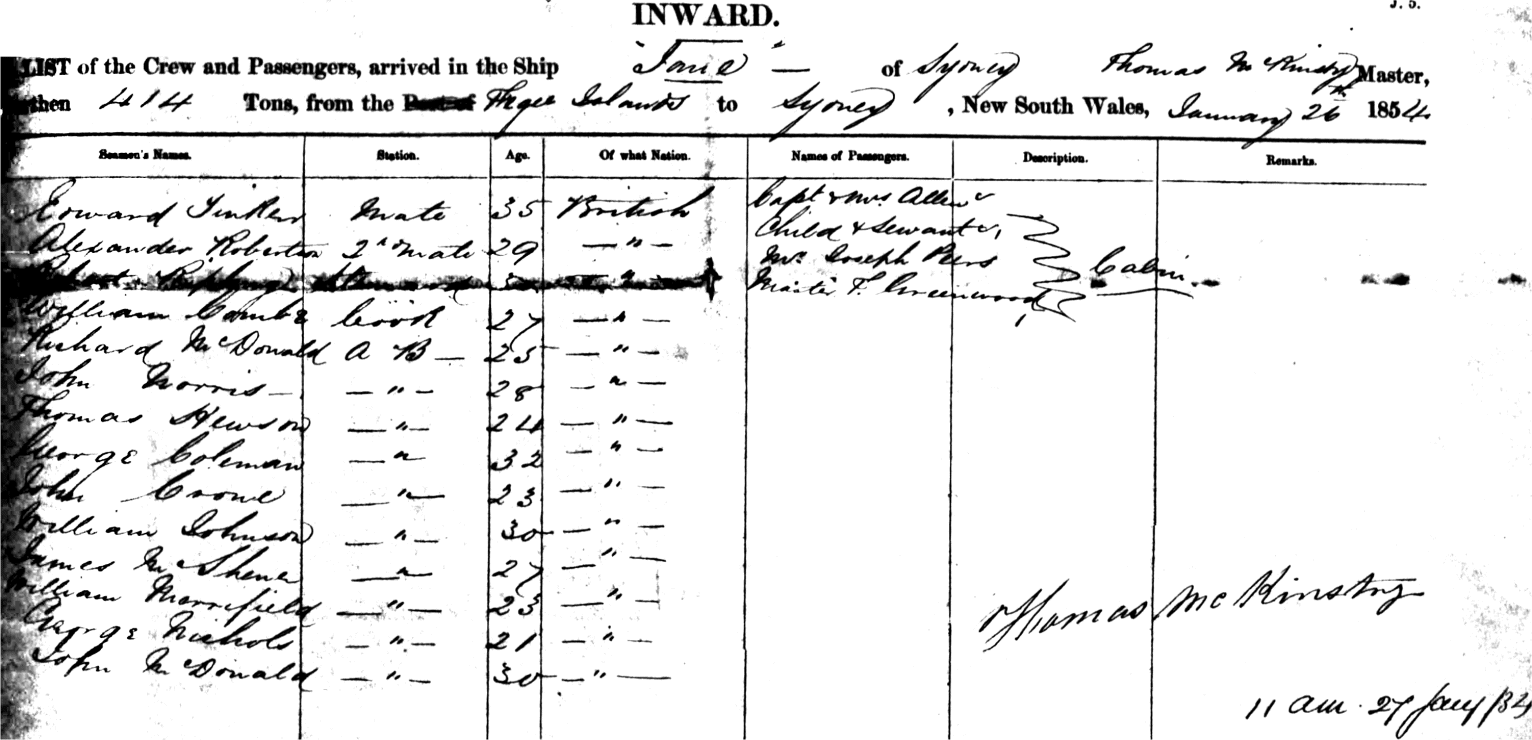 J. 5.
INWARD.
LIST of the Crew and Passengers, arrived in the Ship "Jane" — of Sydney Thomas McKinstry Master,
then 414 Tons, from the Port of Islands to Sydney, New South Wales, January 26th 1854
Seamen's Names. Station. Age. Of what Nation. Names of Passengers. Description. Remarks.
Edward Tinker Mate 35 British Capt & Mrs Allen
Alexander Robertson 2d Mate 29 — " — Child & Servant, Cabin
Steward " Mr Joseph
William Cook 27 — " — Master F. Greenwood
Richard McDonald A B — 25 — " —
John Norris — — " — 28 — " —
Thomas Hewson — " — 24 — " —
George Coleman — " 32 — " —
John Crowe — " — 23 — " —
William Johnson — " — 30 — " —
James McShene — " — 27 — " —
William Merrifield — " — 23 — " —
George Nichols — " — 21 — " —
John McDonald — " — 30 — " —
Thomas McKinstry
11 am. 27 Jany /54